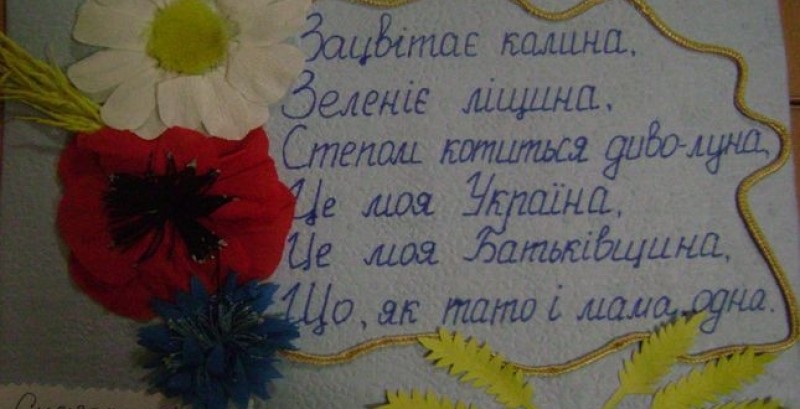 Зацвітає калина,
Зеленіє ліщина,
Степом котиться диво-луна,
Це моя Україна,
Це моя Батьківщина,
Що, як тато і мама, одна.